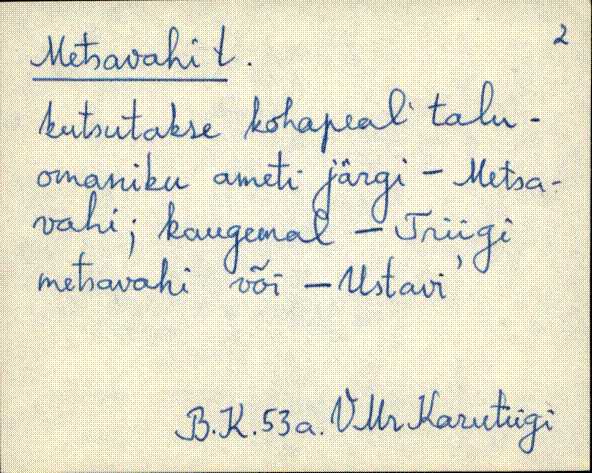 2
Metsavahi t.
kutsutakse kohapeal talu-
omaniku ameti järgi - Metsa-
vahi; kaugemal - Triigi
metsavahi või - Ustavi'
B.K. 53a. VMr Karutiigi